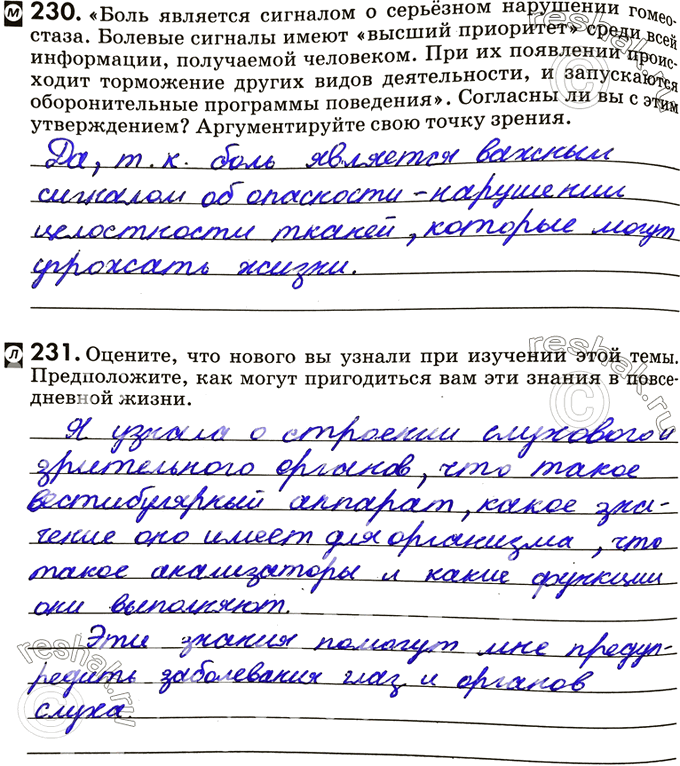 М 230. «Боль является сигналом о серьёзном нарушении гомео-
стаза. Болевые сигналы имеют «высший приоритет» среди всей
информации, получаемой человеком. При их появлении проис-
ходит торможение других видов деятельности, и запускаются
оборонительные программы поведения». Согласны ли вы с этим
утверждением? Аргументируйте свою точку зрения.
Да, т.к. боль является важным
сигналом об опасности - нарушении
целостности тканей, которые могут
угрожать жизни.
Л 231. Оцените, что нового вы узнали при изучении этой темы.
Предположите, как могут пригодиться вам эти знания в повсе-
дневной жизни.
Я узнала о строении слухового и
зрительного органов, что такое
вестибулярный аппарат, какое зна-
чение оно имеет для организма, что
такое анализаторы и какие функции
они выполняют.
Эти знания помогут мне предуп-
редить заболевания глаз и органов
слуха.
reshak.ru
reshak.ru
reshak.ru